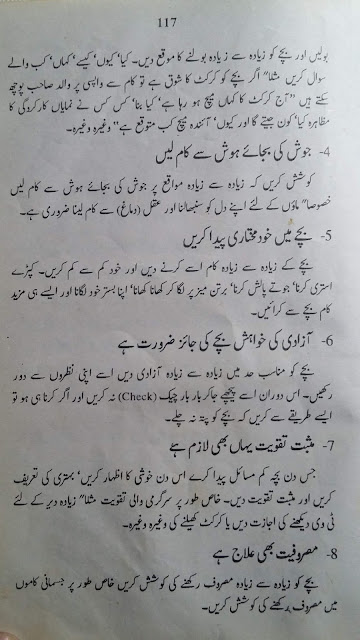 117
بولیں اور بچے کو زیادہ سے زیادہ بولنے کا موقع دیں۔ کیا‘ کیوں‘ کیسے‘ کہاں‘ کب والے
سوال کریں مثلاً’’ اگر بچے کو کرکٹ کا شوق ہے تو کام سے واپسی پر والد صاحب پوچھ
سکتے ہیں ’’ آج کرکٹ کا کہاں میچ ہو رہا ہے‘ کیا بنا‘ کس کس نے نمایاں کارکردگی کا
مظاہرہ کیا‘ کون جیتے گا اور کیوں‘ آئندہ میچ کب متوقع ہے‘‘ وغیرہ وغیرہ۔
4- جوش کی بجائے ہوش سے کام لیں
کوشش کریں کہ زیادہ سے زیادہ مواقع پر جوش کی بجائے ہوش سے کام لیں
خصوصا’’ ماؤں کے لئے اپنے دل کو سنبھالنا اور عقل (دماغ) سے کام لینا ضروری ہے۔
5- بچے میں خود مختاری پیدا کریں
بچے کے زیادہ سے زیادہ کام اسے کرنے دیں اور خود کم سے کم کریں۔ کپڑے
استری کرنا‘ جوتے پالش کرنا‘ برتن میز پر لگا کر کھانا کھانا‘ اپنا بستر خود لگانا اور ایسے ہی مزید
کام بچے سے کرائیں۔
6- آزادی کی خواہش بچے کی جائز ضرورت ہے
بچے کو مناسب حد میں زیادہ سے زیادہ آزادی دیں اسے اپنی نظروں سے دور
رکھیں۔ اس دوران اسے پیچھے جا کر بار بار چیک (Check) نہ کریں اور اگر کرنا ہی ہو تو
ایسے طریقے سے کریں کہ بچے کو پتہ نہ چلے۔
7- مثبت تقویت یہاں بھی لازم ہے
جس دن بچہ کم مسائل پیدا کرے اس دن خوشی کا اظہار کریں‘ بہتری کی تعریف
کریں اور مثبت تقویت دیں۔ خاص طور پر سرگرمی والی تقویت مثلا’’ زیادہ دیر کے لئے
ٹی وی دیکھنے کی اجازت دیں یا کرکٹ کھیلنے کی وغیرہ وغیرہ۔
8- مصروفیت بھی علاج ہے
بچے کو زیادہ سے زیادہ مصروف رکھنے کی کوشش کریں خاص طور پر جسمانی کاموں
میں مصروف رکھنے کی کوشش کریں۔